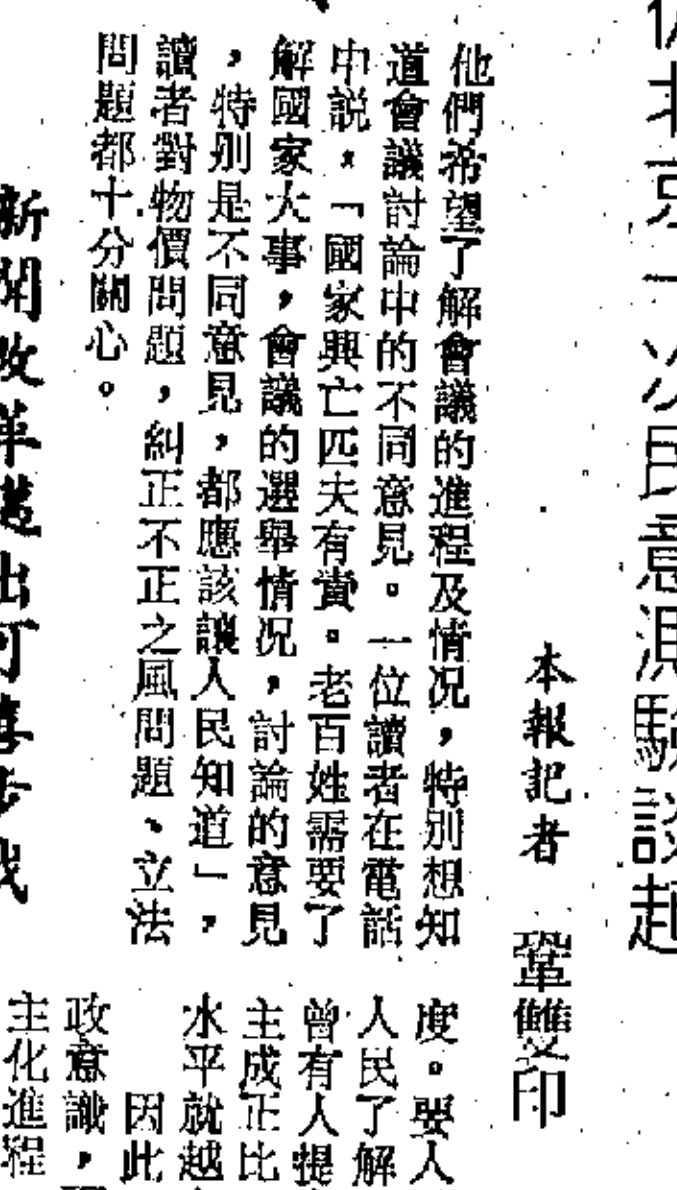 從北京一次民意測驗談起
本報記者　鞏雙印
他們希望了解會議的進程及情况，特別想知
道會議討論中的不同意見。一位讀者在電話
中説，「國家興亡匹夫有責。老百姓需要了
解國家大事，會議的選舉情况，討論的意見
，特別是不同意見，都應該讓人民知道」，
讀者對物價問題，糾正不正之風問題、立法
問題都十分關心。
新聞改革邁出可喜步伐
度。要人
人民了解
曾有人提
主成正比
水平就越
因此
政意識，
主化進程